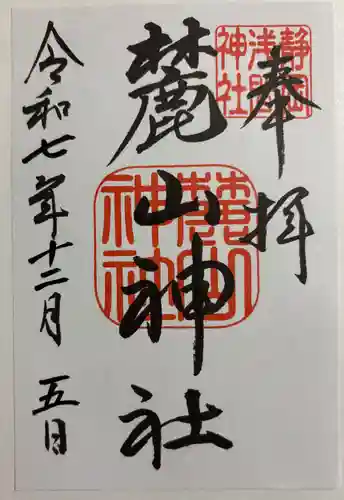 奉拝
静岡
浅間
神社
麓山神社
麓山
神社
令和七年十二月五日